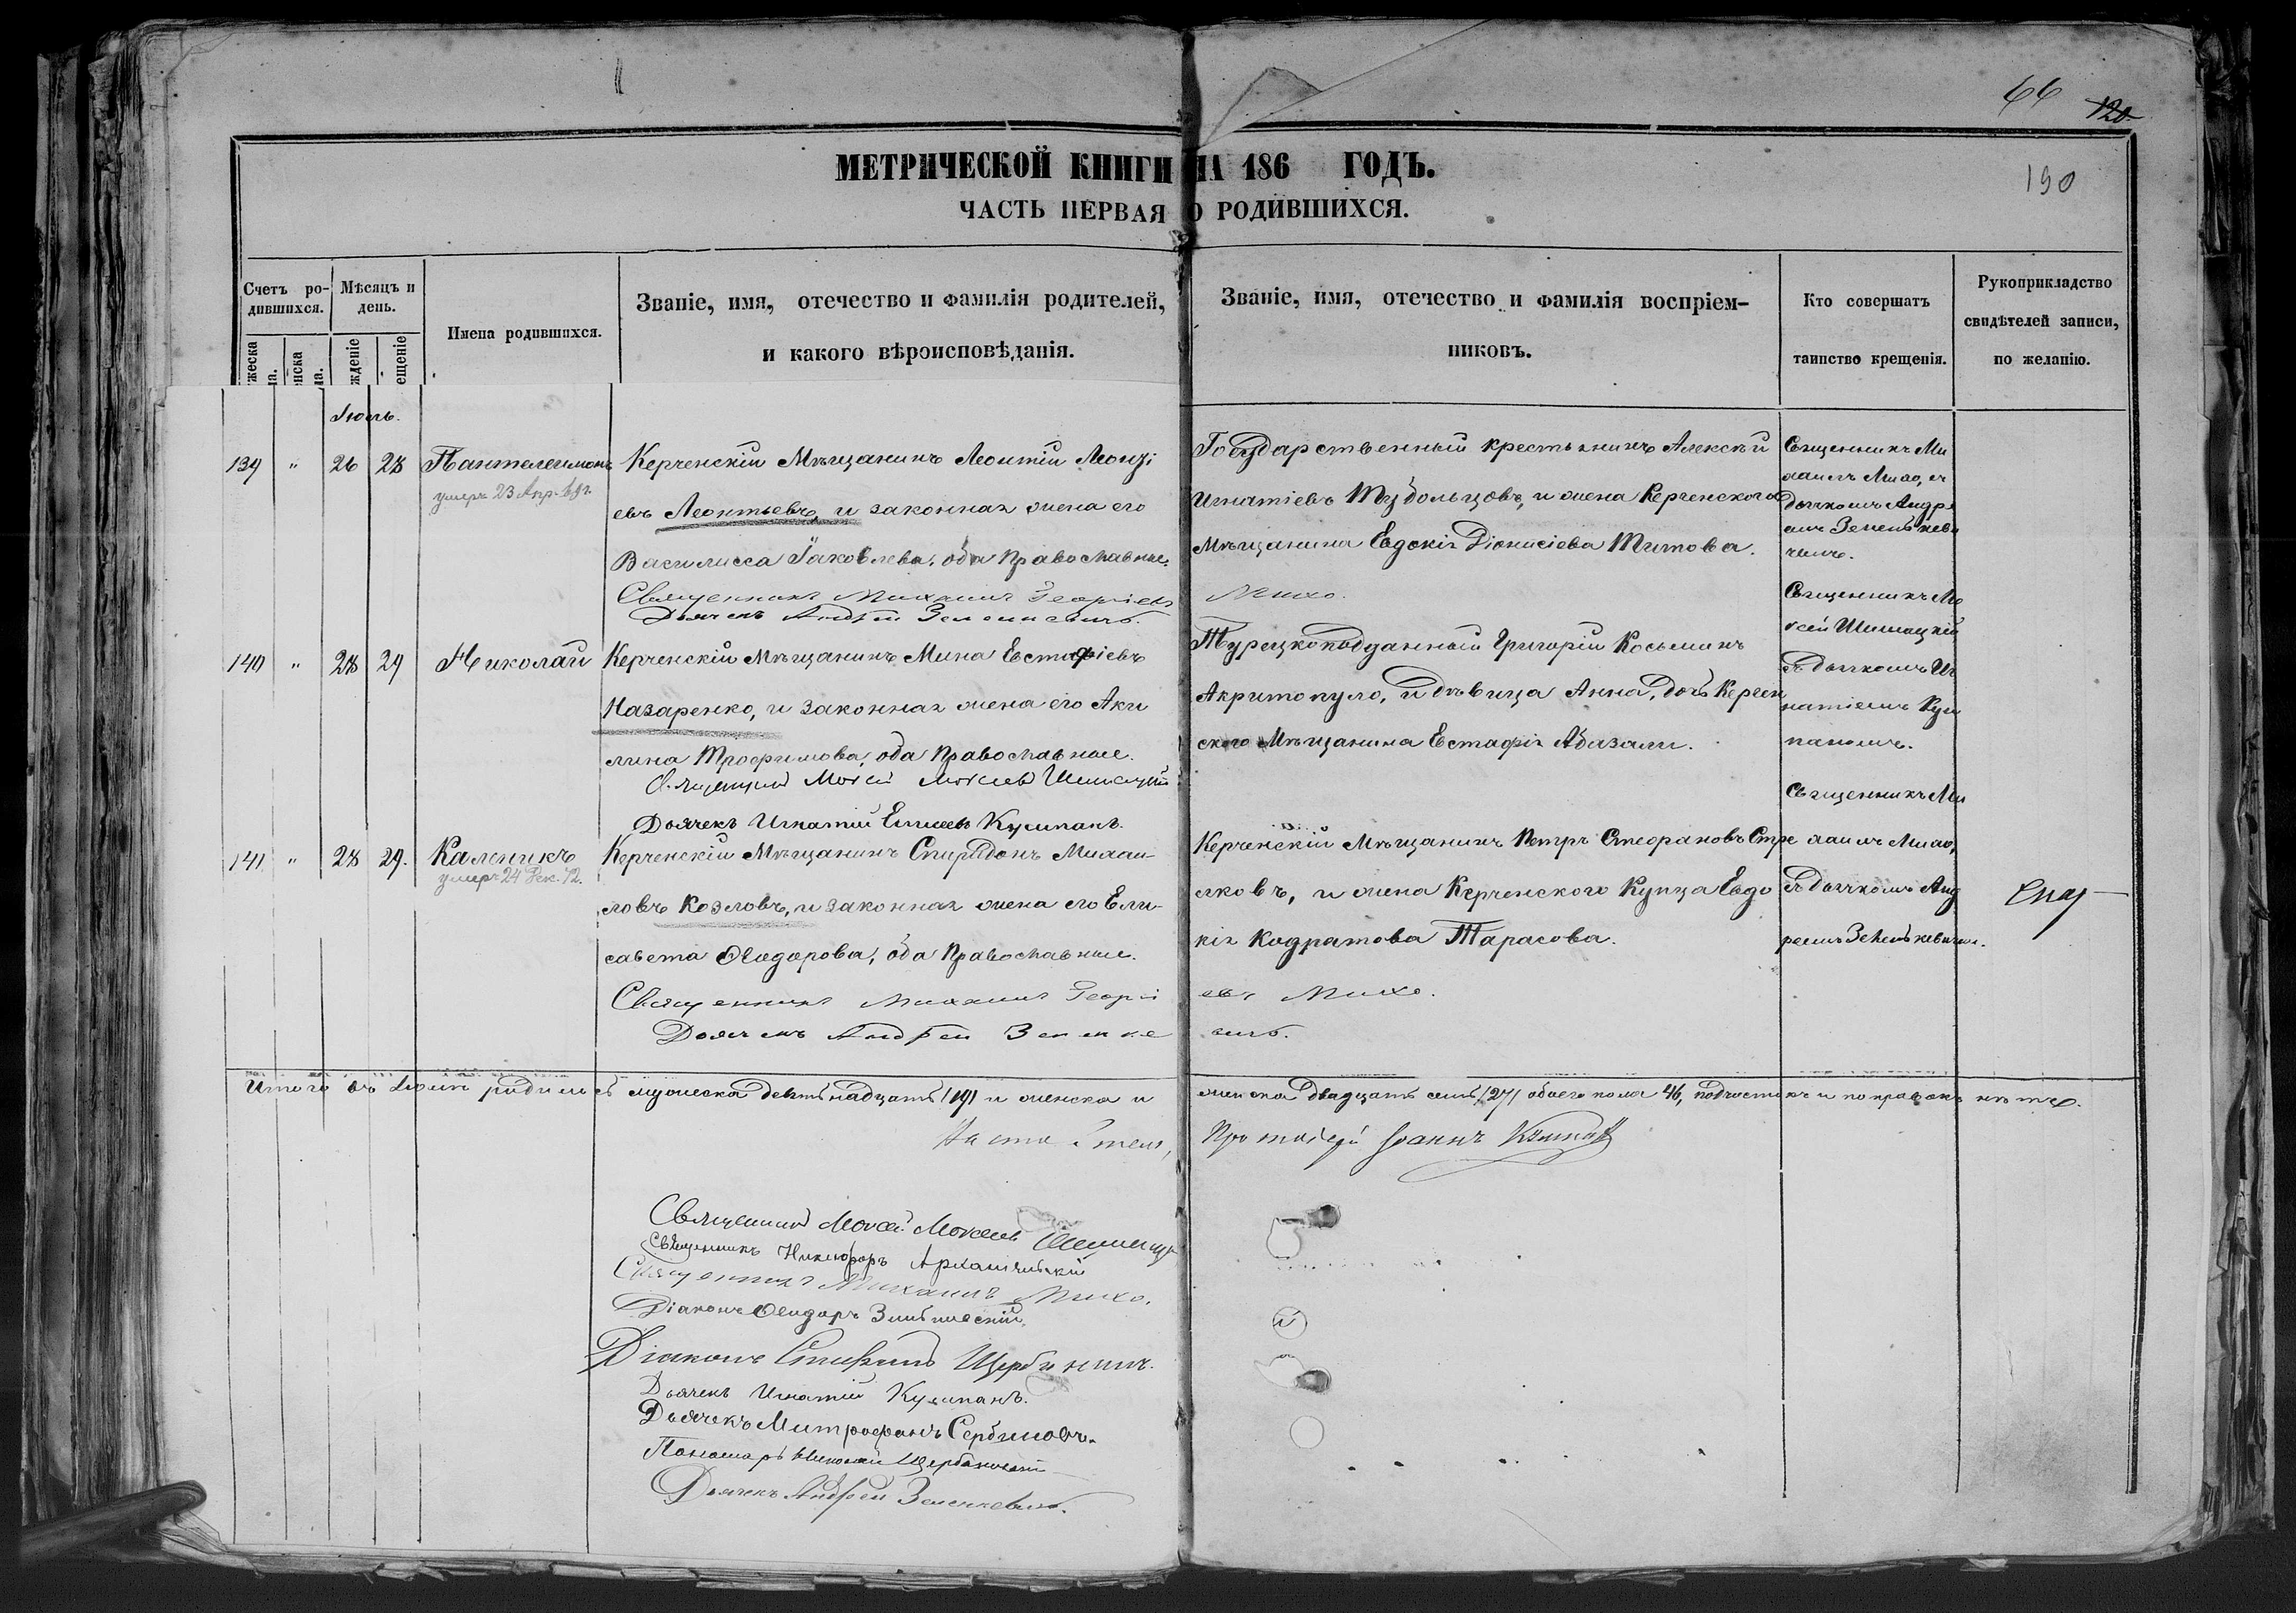 66 120
190
МЕТРИЧЕСКОЙ КНИГИ НА 186 ГОДЪ.
ЧАСТЬ ПЕРВАЯ О РОДИВШИХСЯ.
Счетъ ро-
дившихся.
Мѣсяцъ и
день.
Имена родившихся.
Званіе, имя, отечество и фамилія родителей,
и какого вѣроисповѣданія.
Званіе, имя, отечество и фамилія воспріем-
никовъ.
Кто совершатъ
таинство крещенія.
Рукоприкладство
свидѣтелей записи,
по желанію.
Іюль.
139 " 26 28 Пантелеимонъ
умеръ 23 Апр.
Керченскій Мѣщанинъ Леонтій
евъ Леонтьевъ, и законная жена его
Василисса Іаковлева, оба Православные.
Священникъ Михаилъ Георгіевъ
Михо.
Дьячекъ Андрей Зеленкевичъ.
Государственный крестьянинъ Алексѣй
Игнатіевъ Тубольцовъ, и жена Керченскаго
Мѣщанина Евдокія Діонисіева Титова.
Священникъ Ми
хаилъ Михо, съ
дьячкомъ Андре
емъ Зеленкеви
чемъ.
140 " 28 29 Николай
Керченскій Мѣщанинъ Мина Евстафіевъ
Назаренко, и законная жена его Аки
лина Трофимова, оба Православные.
Священникъ Моисей Моисеевъ Шишацкій
Дьячекъ Игнатій Кушпанъ.
Турецкоподданный Григорій Косьминъ
Акритопуло, и дѣвица Анна, дочь Керчен
скаго Мѣщанина Евстафія Абазали.
Священникъ Мо
исей Шишацкій
съ дьячкомъ Иг
натіемъ Куш
паномъ.
141 " 28 29. Каленикъ
умеръ 24 Дек. 72.
Керченскій Мѣщанинъ Спиридонъ Михаи-
ловъ Козловъ, и законная жена его Ели-
савета Ѳеодорова, оба Православные.
Священникъ Михаилъ Георгі
евъ Михо.
Дьячекъ Андрей Зеленке
вичъ.
Керченскій Мѣщанинъ Петръ Стефановъ Стре
лковъ, и жена Керченскаго Купца Евдо
кія Кодратова Тарасова.
Священникъ Ми
хаилъ Михо,
съ дьячкомъ Анд
реемъ Зеленкевичемъ.
Итого въ Іюлѣ родилось мужеска девятнадцать /19/ и женска и
женска двадцать семь /27/ обоего пола 46, подчистокъ и поправокъ нѣтъ.
Настоятель,
Протоіерей Іоаннъ
Священникъ Моисей Моисеевъ Шишацкій
Священникъ Никифоръ Архангельскій
Священникъ Михаилъ Михо.
Діаконъ Ѳеодоръ
Діаконъ Спиридонъ Щербининъ.
Дьячекъ Игнатій Кушпанъ.
Дьячекъ Митрофанъ Сербиновъ.
Пономарь Николай
Дьячекъ Андрей Зеленкевичъ.